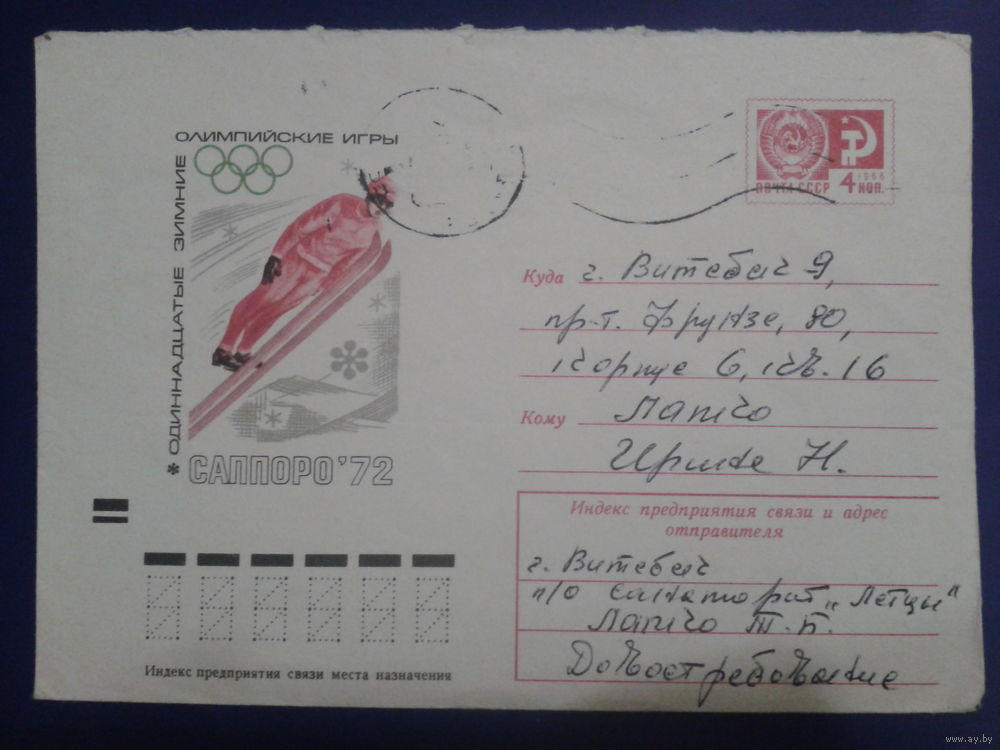 ОДИННАДЦАТЫЕ ЗИМНИЕ
ОЛИМПИЙСКИЕ ИГРЫ
САППОРО '72
ПОЧТА СССР
1966
4 КОП.
Куда г. Витебск 9,
пр-т. Фрунзе, 80,
корпус 6, кв. 16
Кому Лапко
Ирине Н.
Индекс предприятия связи и адрес
отправителя
г. Витебск
п/о Санаторий „Летцы"
Лапко Т. Б.
Довостребование
Индекс предприятия связи места назначения
www.ay.by